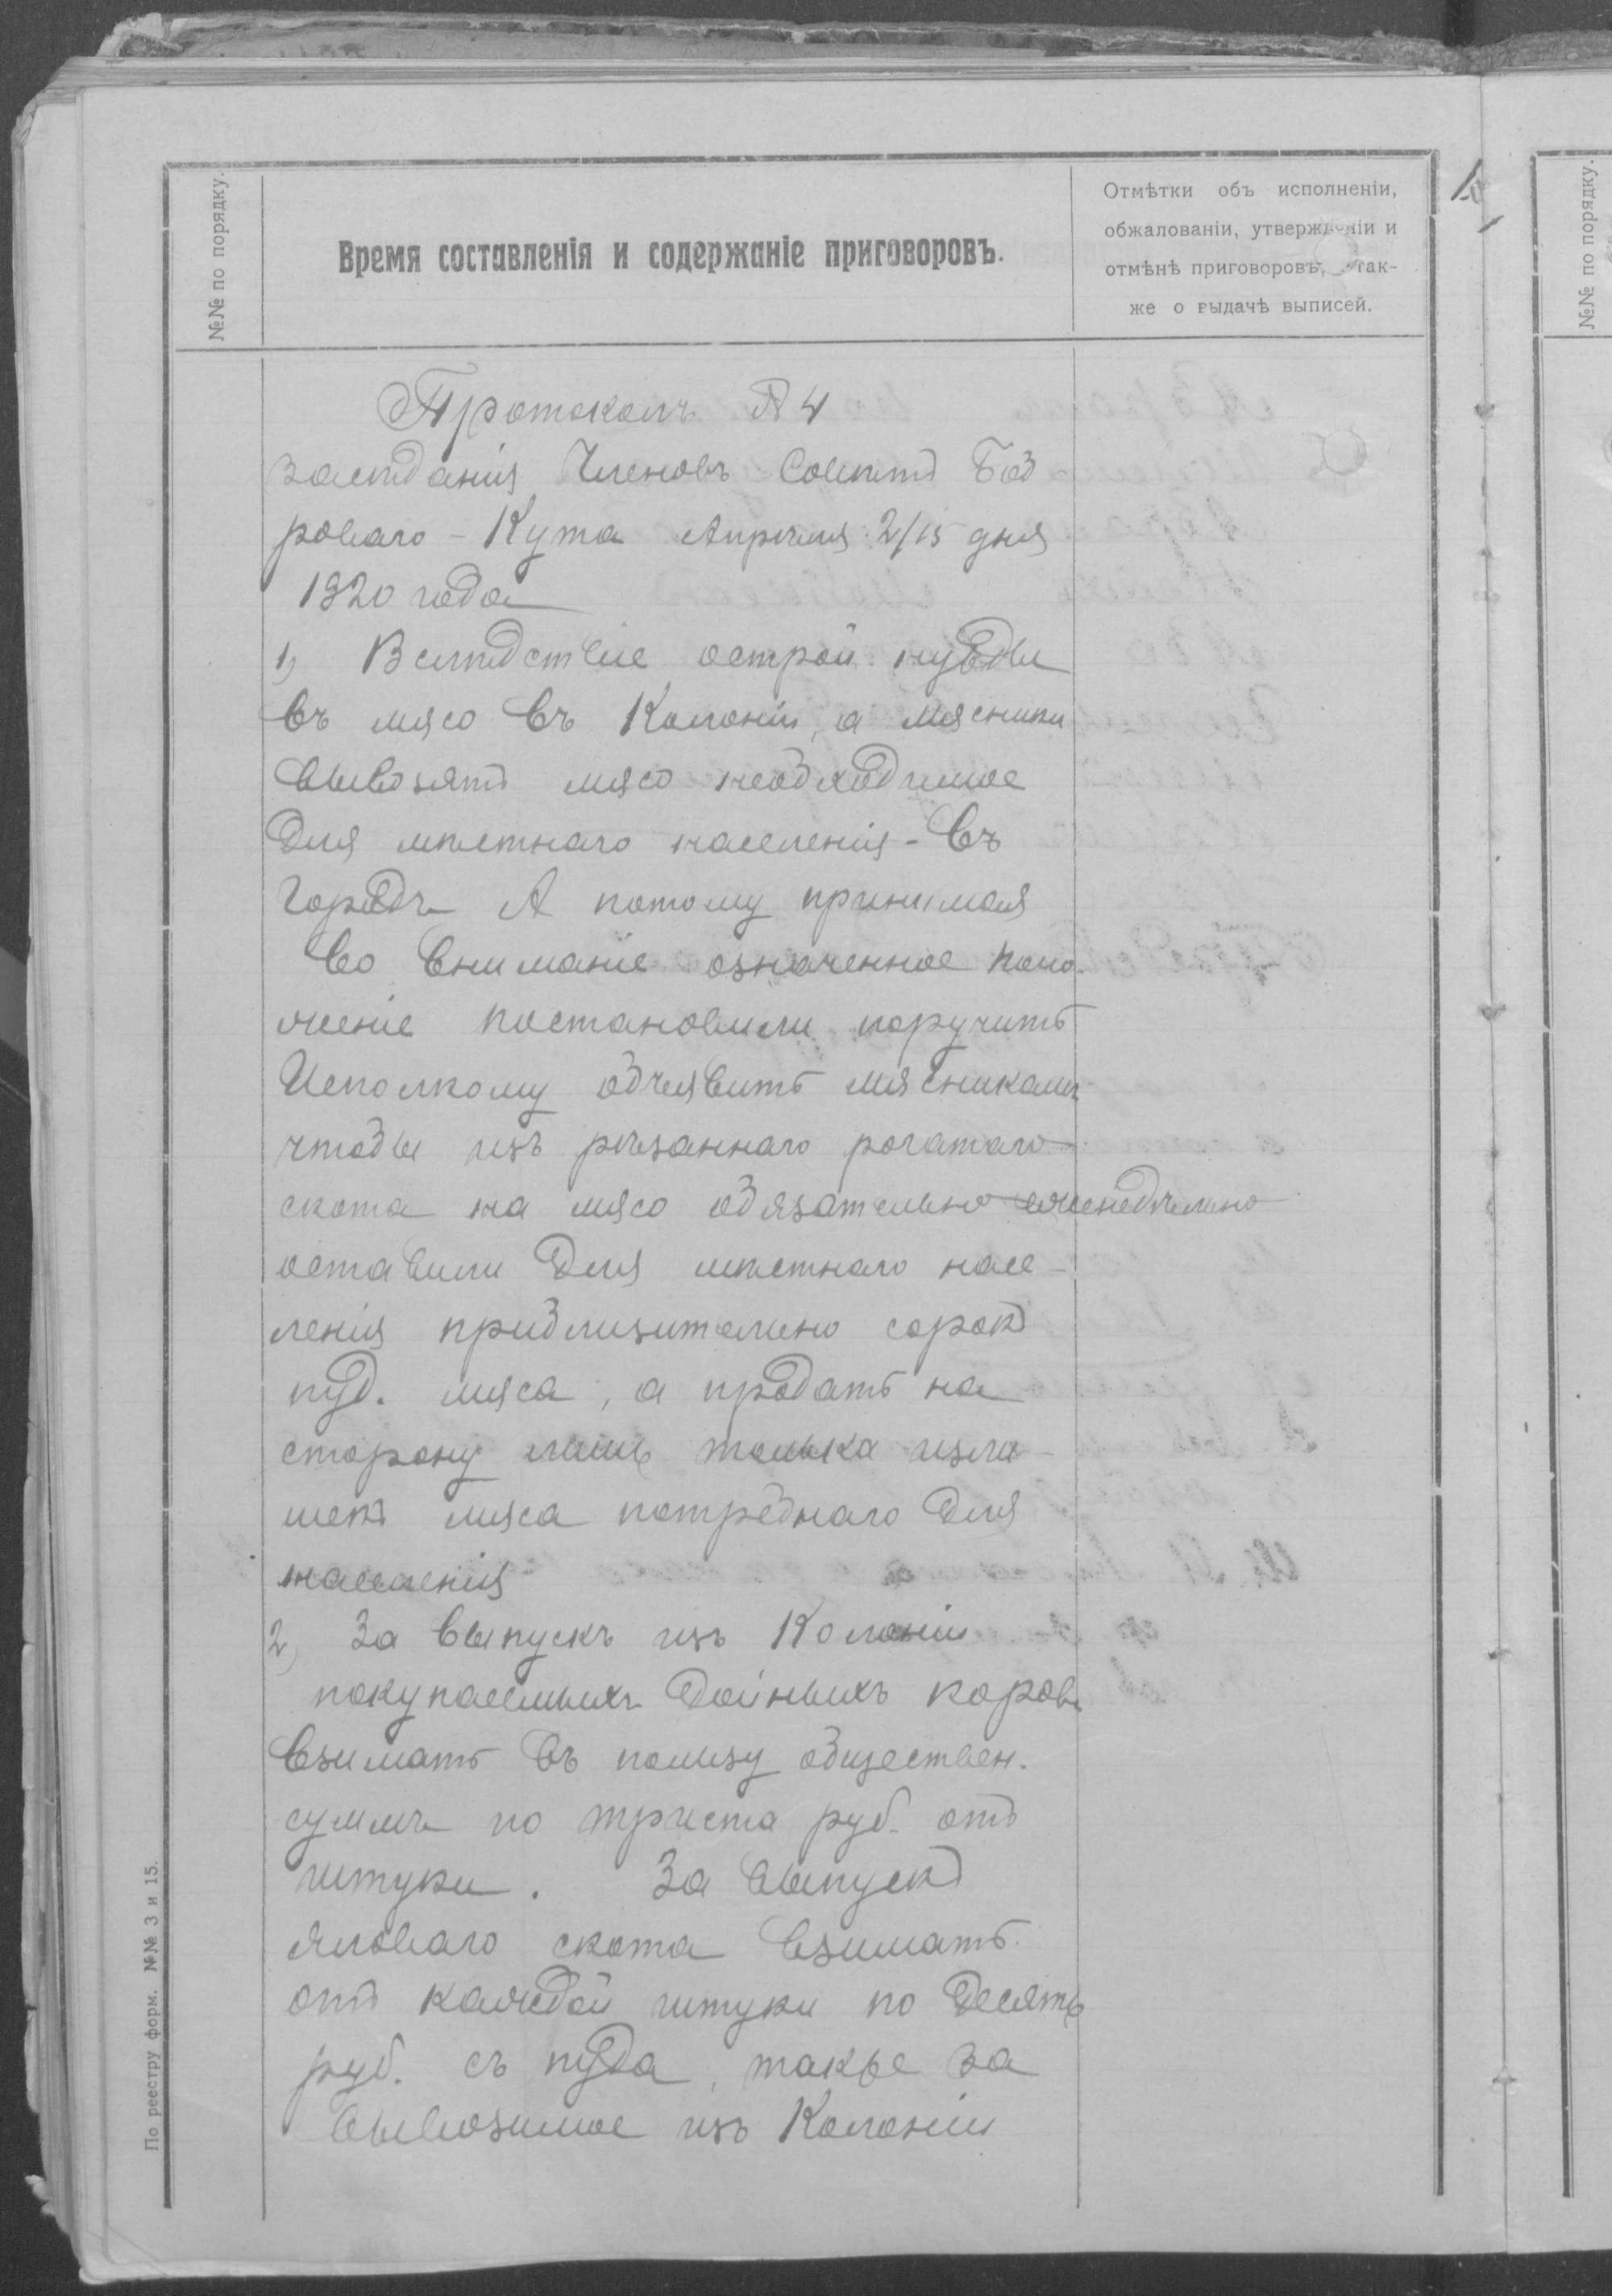 №№ по порядку.
Время составленія и содержаніе приговоровъ.
Отмѣтки объ исполненіи,
обжалованіи, утвержденіи и
отмѣнѣ приговоровъ, а так-
же о выдачѣ выписей.
№№ по порядку.
Протоколъ № 4
засѣданія Членовъ Совѣта Боб
роваго - Кута Апрѣля 2/15 дня
1920 года
1) Вслѣдствіе острой нужды
въ мясо въ Колоніи, а мясники
вывозятъ мясо необходимое
для мѣстнаго населенія - въ
городъ А потому принимая
во вниманіе означенное поло
женіе постановили поручить
Исполкому объявить мясникамъ
чтобы изъ рѣзаннаго рогатаго
скота на мясо обязательно еженедѣльно
оставили для мѣстнаго насе-
ленія приблизительно сорокъ
пуд. мяса, а продать на
сторону лишь только изли-
шекъ мяса потребнаго для
населенія
2) За выпускъ изъ Колоніи
покупаемыхъ дойныхъ коровъ
взимать въ пользу обществен.
суммъ по триста руб. отъ
штуки. За выпускъ
яловаго скота взимать
отъ каждой штуки по десять
руб. съ пуда, также за
вывозимое изъ Колоніи
По реестру форм. №№ 3 и 15.